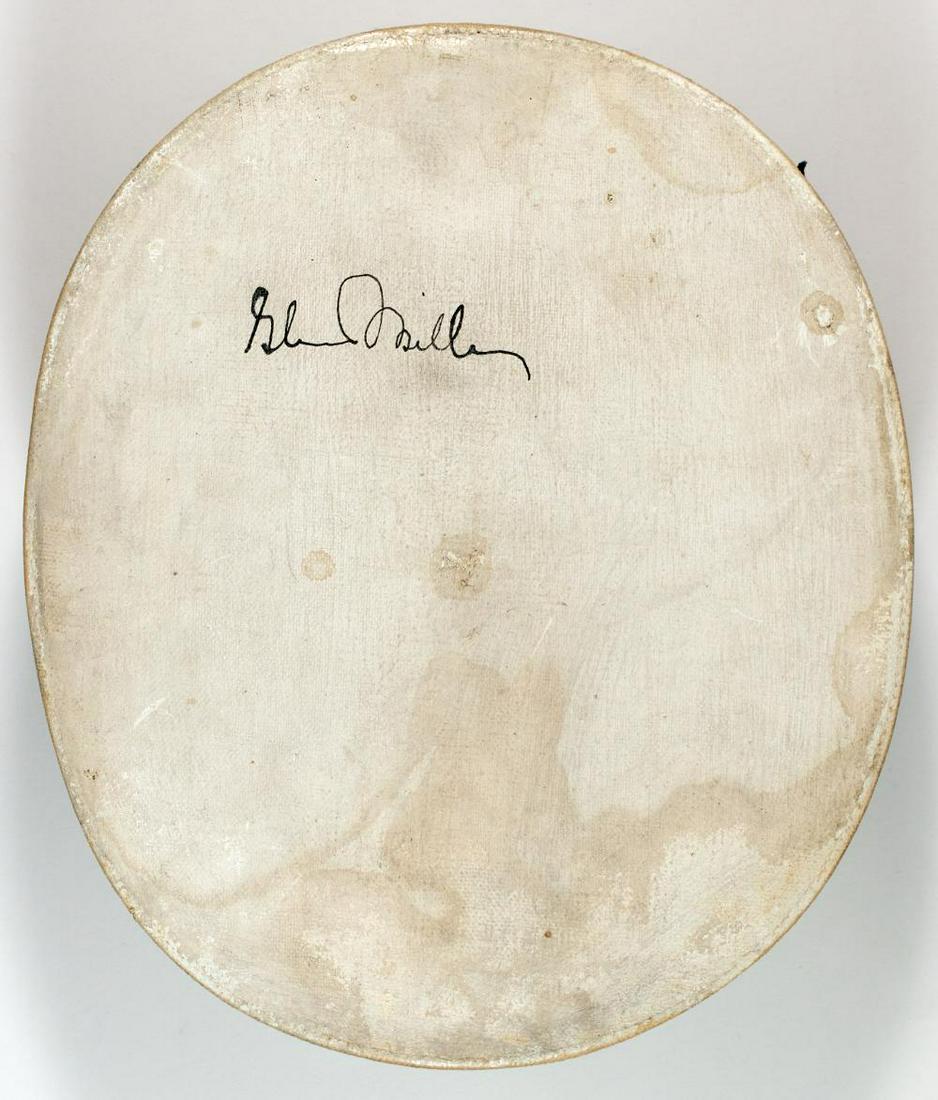 Glenn Miller